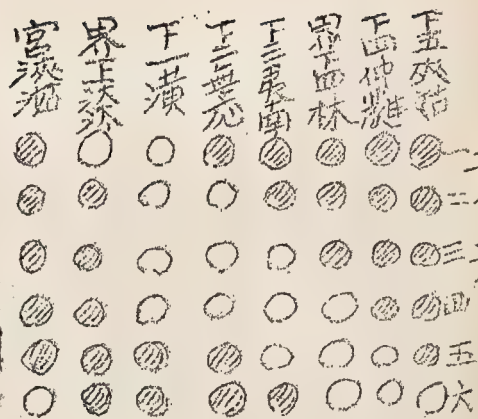 下五夾姑
下四仲蕤
界下四林
下三夷南
下二無应
下一潢
界上
宮浹
一
二
三
四
五
六